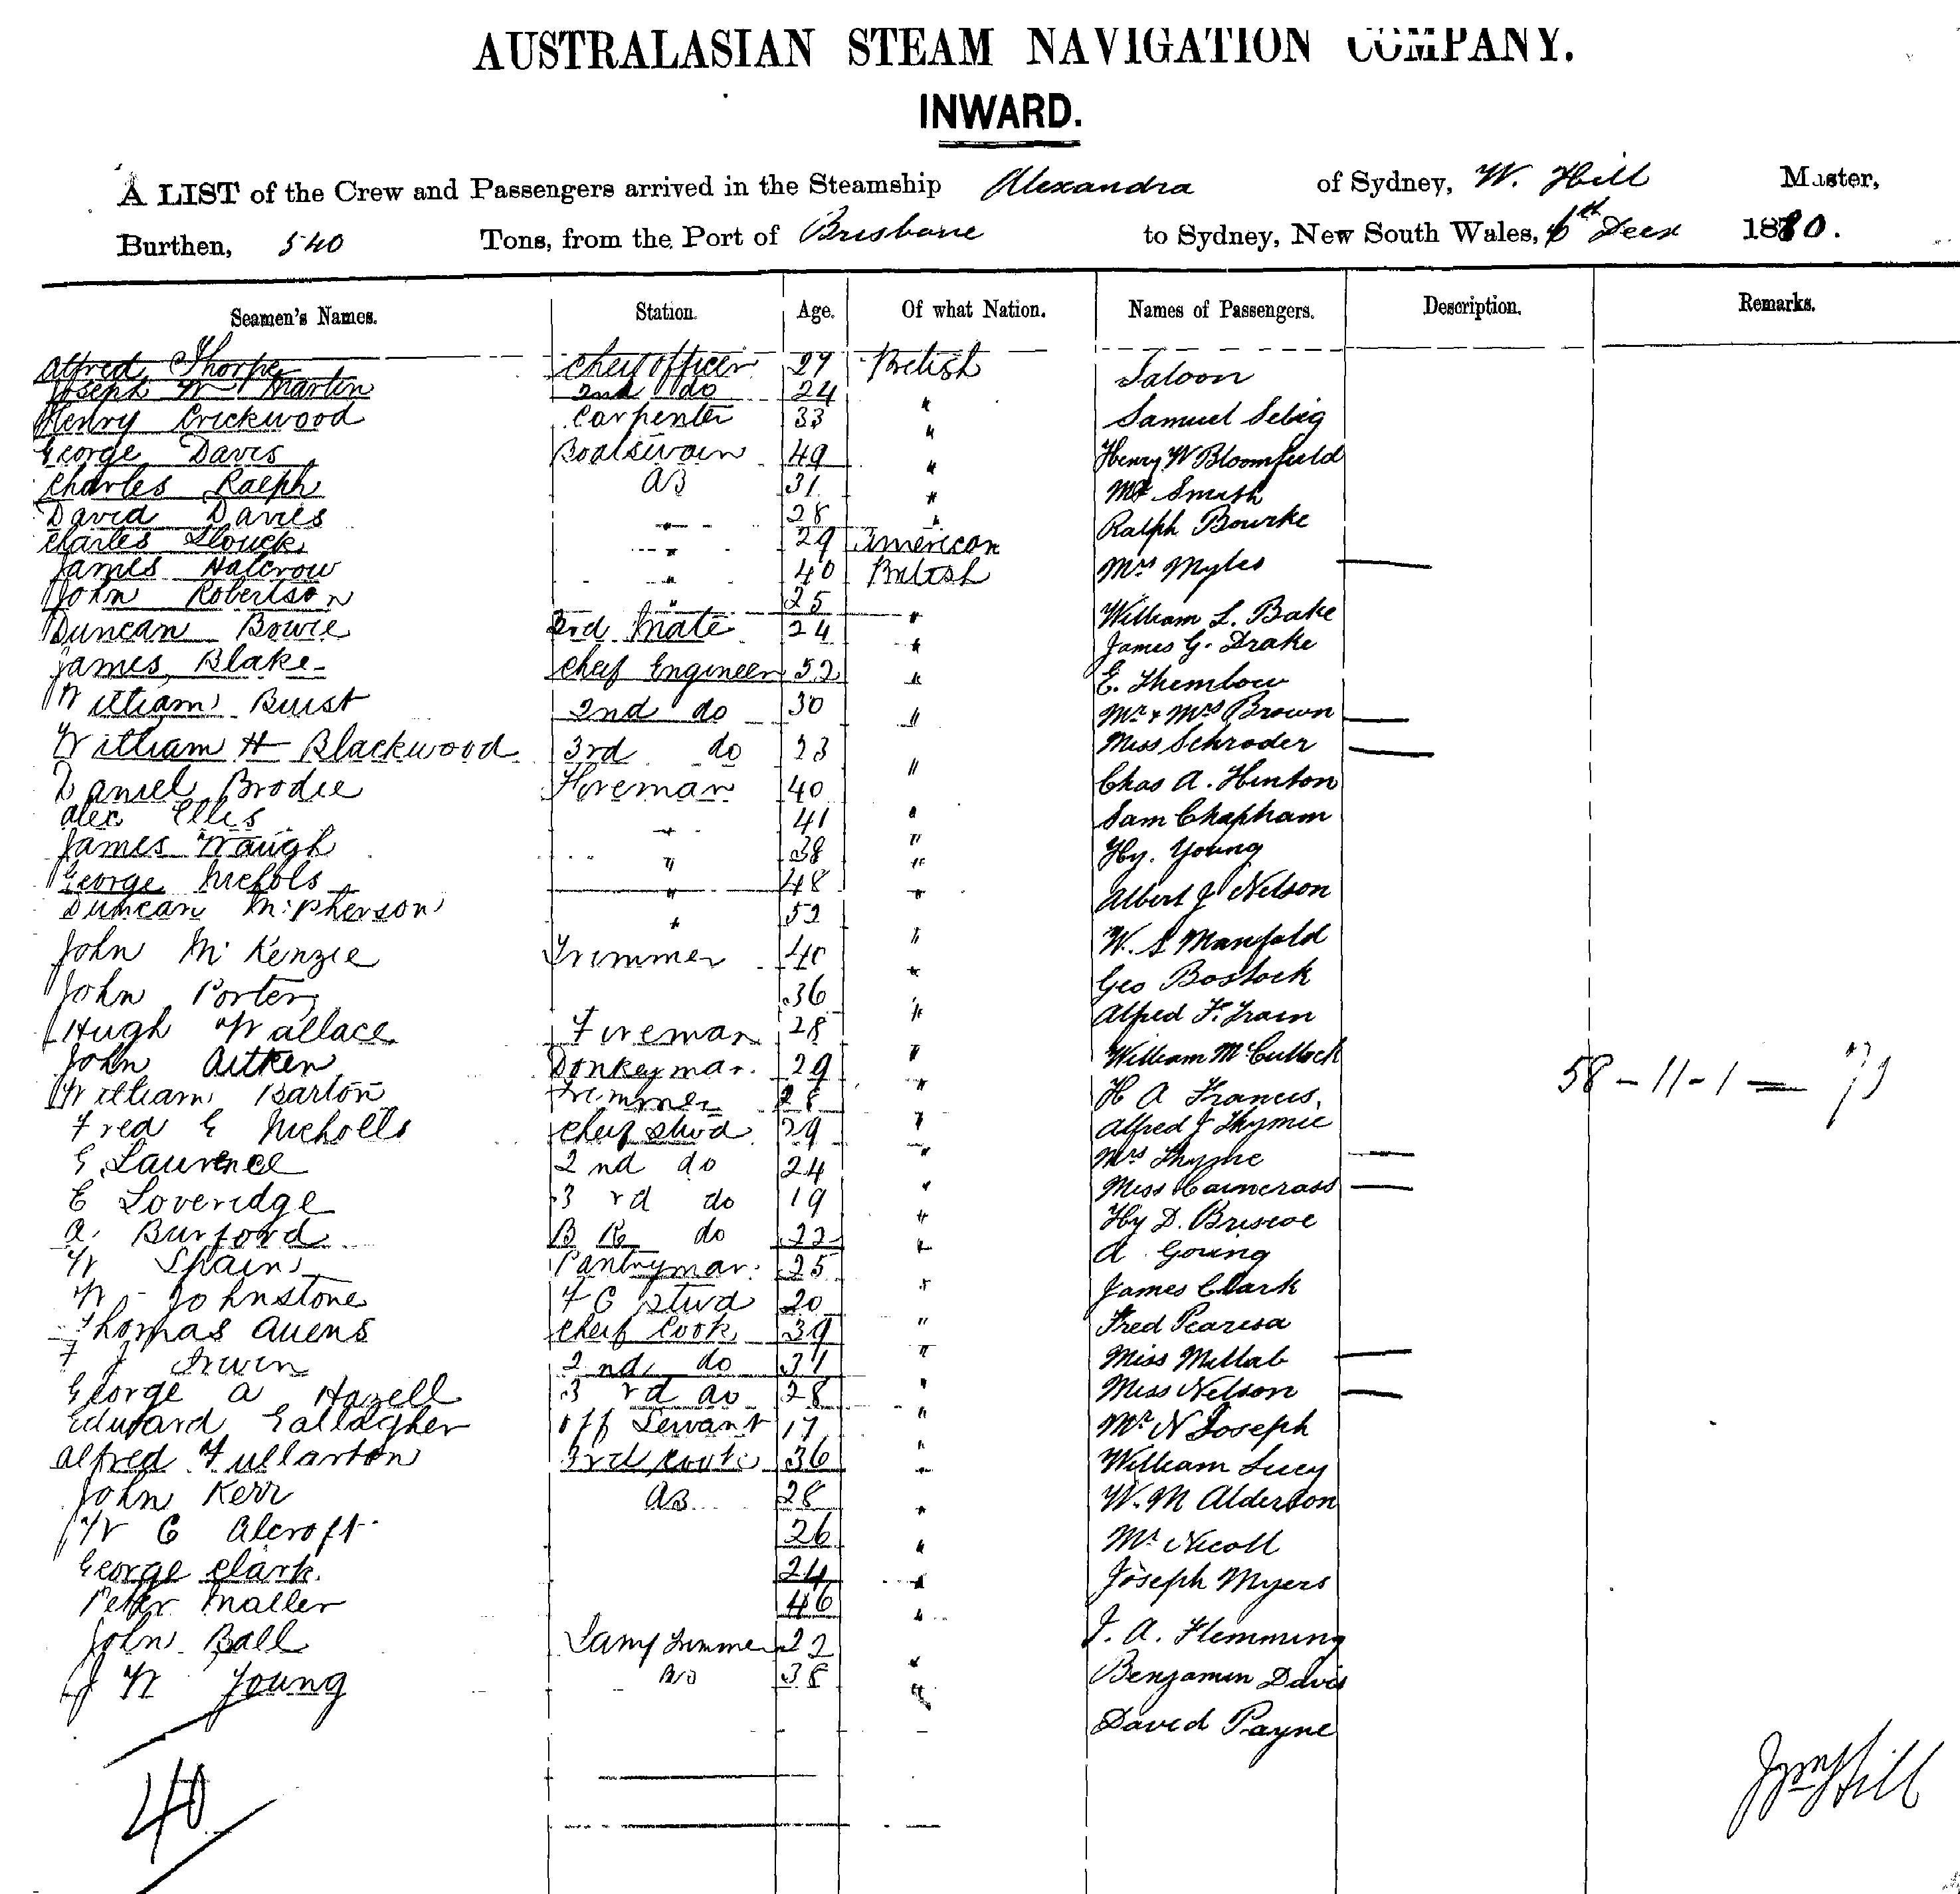 AUSTRALASIAN STEAM NAVIGATION COMPANY.
INWARD.
A LIST of the Crew and Passengers arrived in the Steamship Alexandra of Sydney, W. Hill Master,
Burthen, 540 Tons, from the Port of Brisbane to Sydney, New South Wales, 6th Decr 1880.
Seamen's Names. Station. Age. Of what Nation. Names of Passengers. Description. Remarks.
Alfred Thorpe Cheif officer 29 British Saloon
Joseph W Martin 2nd do 24 "
Henry Crickwood Carpenter 33 " Samuel Sebig
George Davis Boatswain 49 " Henry W Bloomfield
Charles Ralph AB 31 " Mr Smith
David Davies " 28 " Ralph Bourke
Charles " 29 American
James Halcrow " 40 British Mrs Myles —
John Robertson " 25 " William L. Bake
Duncan Bowie 2rd Mate 24 " James G. Drake
James Blake Cheif Engineer 52 " E. Thembow
William Buist 2nd do 30 " Mr & Mrs Brown —
William H Blackwood 3rd do 23 " Miss Schroder —
Daniel Brodie Foreman 40 " Chas A. Hinton
Alec Ellis " 41 " Sam Chapham
James Waugh " 38 " Hy. Young
George Nichols " 48 " Albert J Nelson
Duncan McPherson " 52 "
John McKenzie Trimmer 40 " W. S Manifold
John Porter 36 " Geo Bostock
Hugh Wallace Fireman 28 " Alfred F. Train
John Aitken Donkeyman 29 " William McCullock
William Barton Trimmer 28 " H A Francis, 58 – 11 – 1 =
Fred G Nicholls Cheif Stwd 29 " Alfred J Thymie
G. Laurence 2nd do 24 " Mrs Thyme —
E Loveridge 3rd do 19 " Miss Cairncross —
A. Burford B R do 22 " Hy D. Briscoe
W Spains Pantryman 25 " A Goring
W Johnstone F C Stwd 20 " James Clark
Thomas Auens Cheif Cook 39 " Fred Pearesa
F J Irwin 2nd do 31 " Miss Millab —
George A Hazell 3rd do 28 " Miss Nelson —
Edward Gallagher Off Servant 17 " Mr N Joseph
Alfred Fullarton 3rd Cook 36 " William Lucy
John Kerr AB 28 " W. M Alderson
W C Alcroft 26 " Mr Nicoll
George Clark. 24 " Joseph Myers
Peter Maller 46 " J. A. Flemming
John Ball Lamp Trimmer 22 " Benjamin Davis
J W Young 38 " David Payne
40 Wm Hill